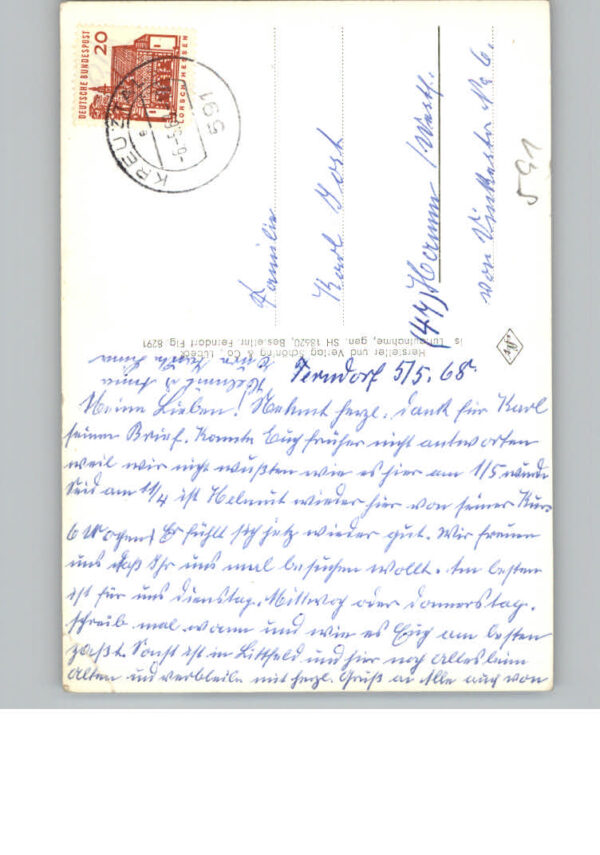 DEUTSCHE BUNDESPOST
20
LORSCH/HESSEN
KREUZTAL
591
Familie
Karl Jost
(44) Hamm / Westf.
von Vinkestr No 6.
591
Hersteller und Verlag Schöning & Co., Lübeck
Luftaufnahme, gen. SH 18620, Bestellnr. Ferndorf Flg 8291
Ferndorf 5/5. 68.
Meine Lieben! Nehmt herzl. Dank für Karl
seinen Brief. Konnte Euch früher nicht antworten
weil wir nicht wußten wie es hier am 1/5 würde
Seid am 11/4 ist Helmut wieder hier von seiner Kur
6 Wochen) Er fühlt sich jetz wieder gut. Wir freuen
uns daß Ihr uns mal besuchen wollt. Am besten
ist für uns Dienstag, Mittwoch oder Donnerstag.
schreib mal wann und wie es Euch am besten
paßt. Sonst ist in Littfeld und hier noch alles beim
Alten und verbleibe mit herzl. Gruß an Alle auch von
Helmut u
Eure